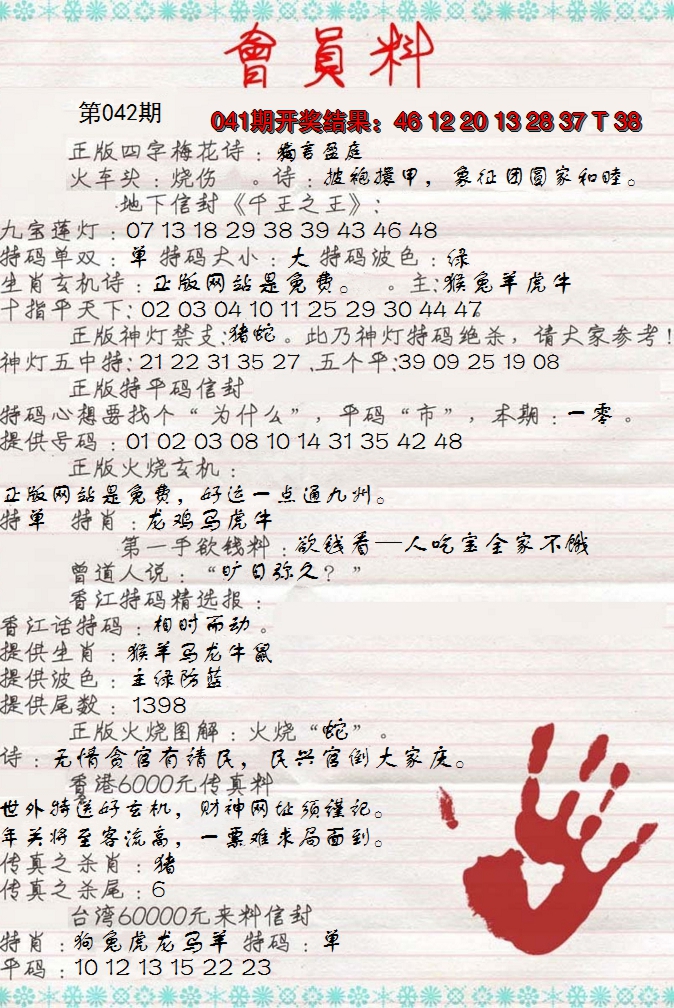 會員料
第042期
041期开奖结果：46 12 20 13 28 37 T 38
正版四字梅花诗：满言盈庭
火车头：烧伤　。诗：披袍擐甲，象征团圆家和睦。
地下信封《千王之王》：
九宝莲灯：07 13 18 29 38 39 43 46 48
特码单双：单 特码大小：大 特码波色：绿
生肖玄机诗：正版网站是免费。　。主：猴兔羊虎牛
十指平天下：02 03 04 10 11 25 29 30 44 47
正版神灯禁支：猪蛇。此乃神灯特码绝杀，请大家参考！
神灯五中特：21 22 31 35 27 .五个平：39 09 25 19 08
正版特平码信封
特码心想要找个“为什么”，平码“市”，本期：一零。
提供号码：01 02 03 08 10 14 31 35 42 48
正版火烧玄机：
正版网站是免费，好运一点通九州。
特单　特肖：龙鸡马虎牛
第一手欲钱料：欲钱看一人吃宝全家不饿
曾道人说：“旷日弥久？”
香江特码精选报：
香江话特码：相时而动。
提供生肖：猴羊马龙牛鼠
提供波色：主绿防蓝
提供尾数：1398
正版火烧图解：火烧“蛇”。
诗：无情贪官有请民，民兴官倒大家庆。
香港6000元传真料
世外特送好玄机，财神网址须谨记。
年关将至客流高，一票难求局面到。
传真之杀肖：猪
传真之杀尾：6
台湾60000元来料信封
特肖：狗兔虎龙马羊 特码：单
平码：10 12 13 15 22 23